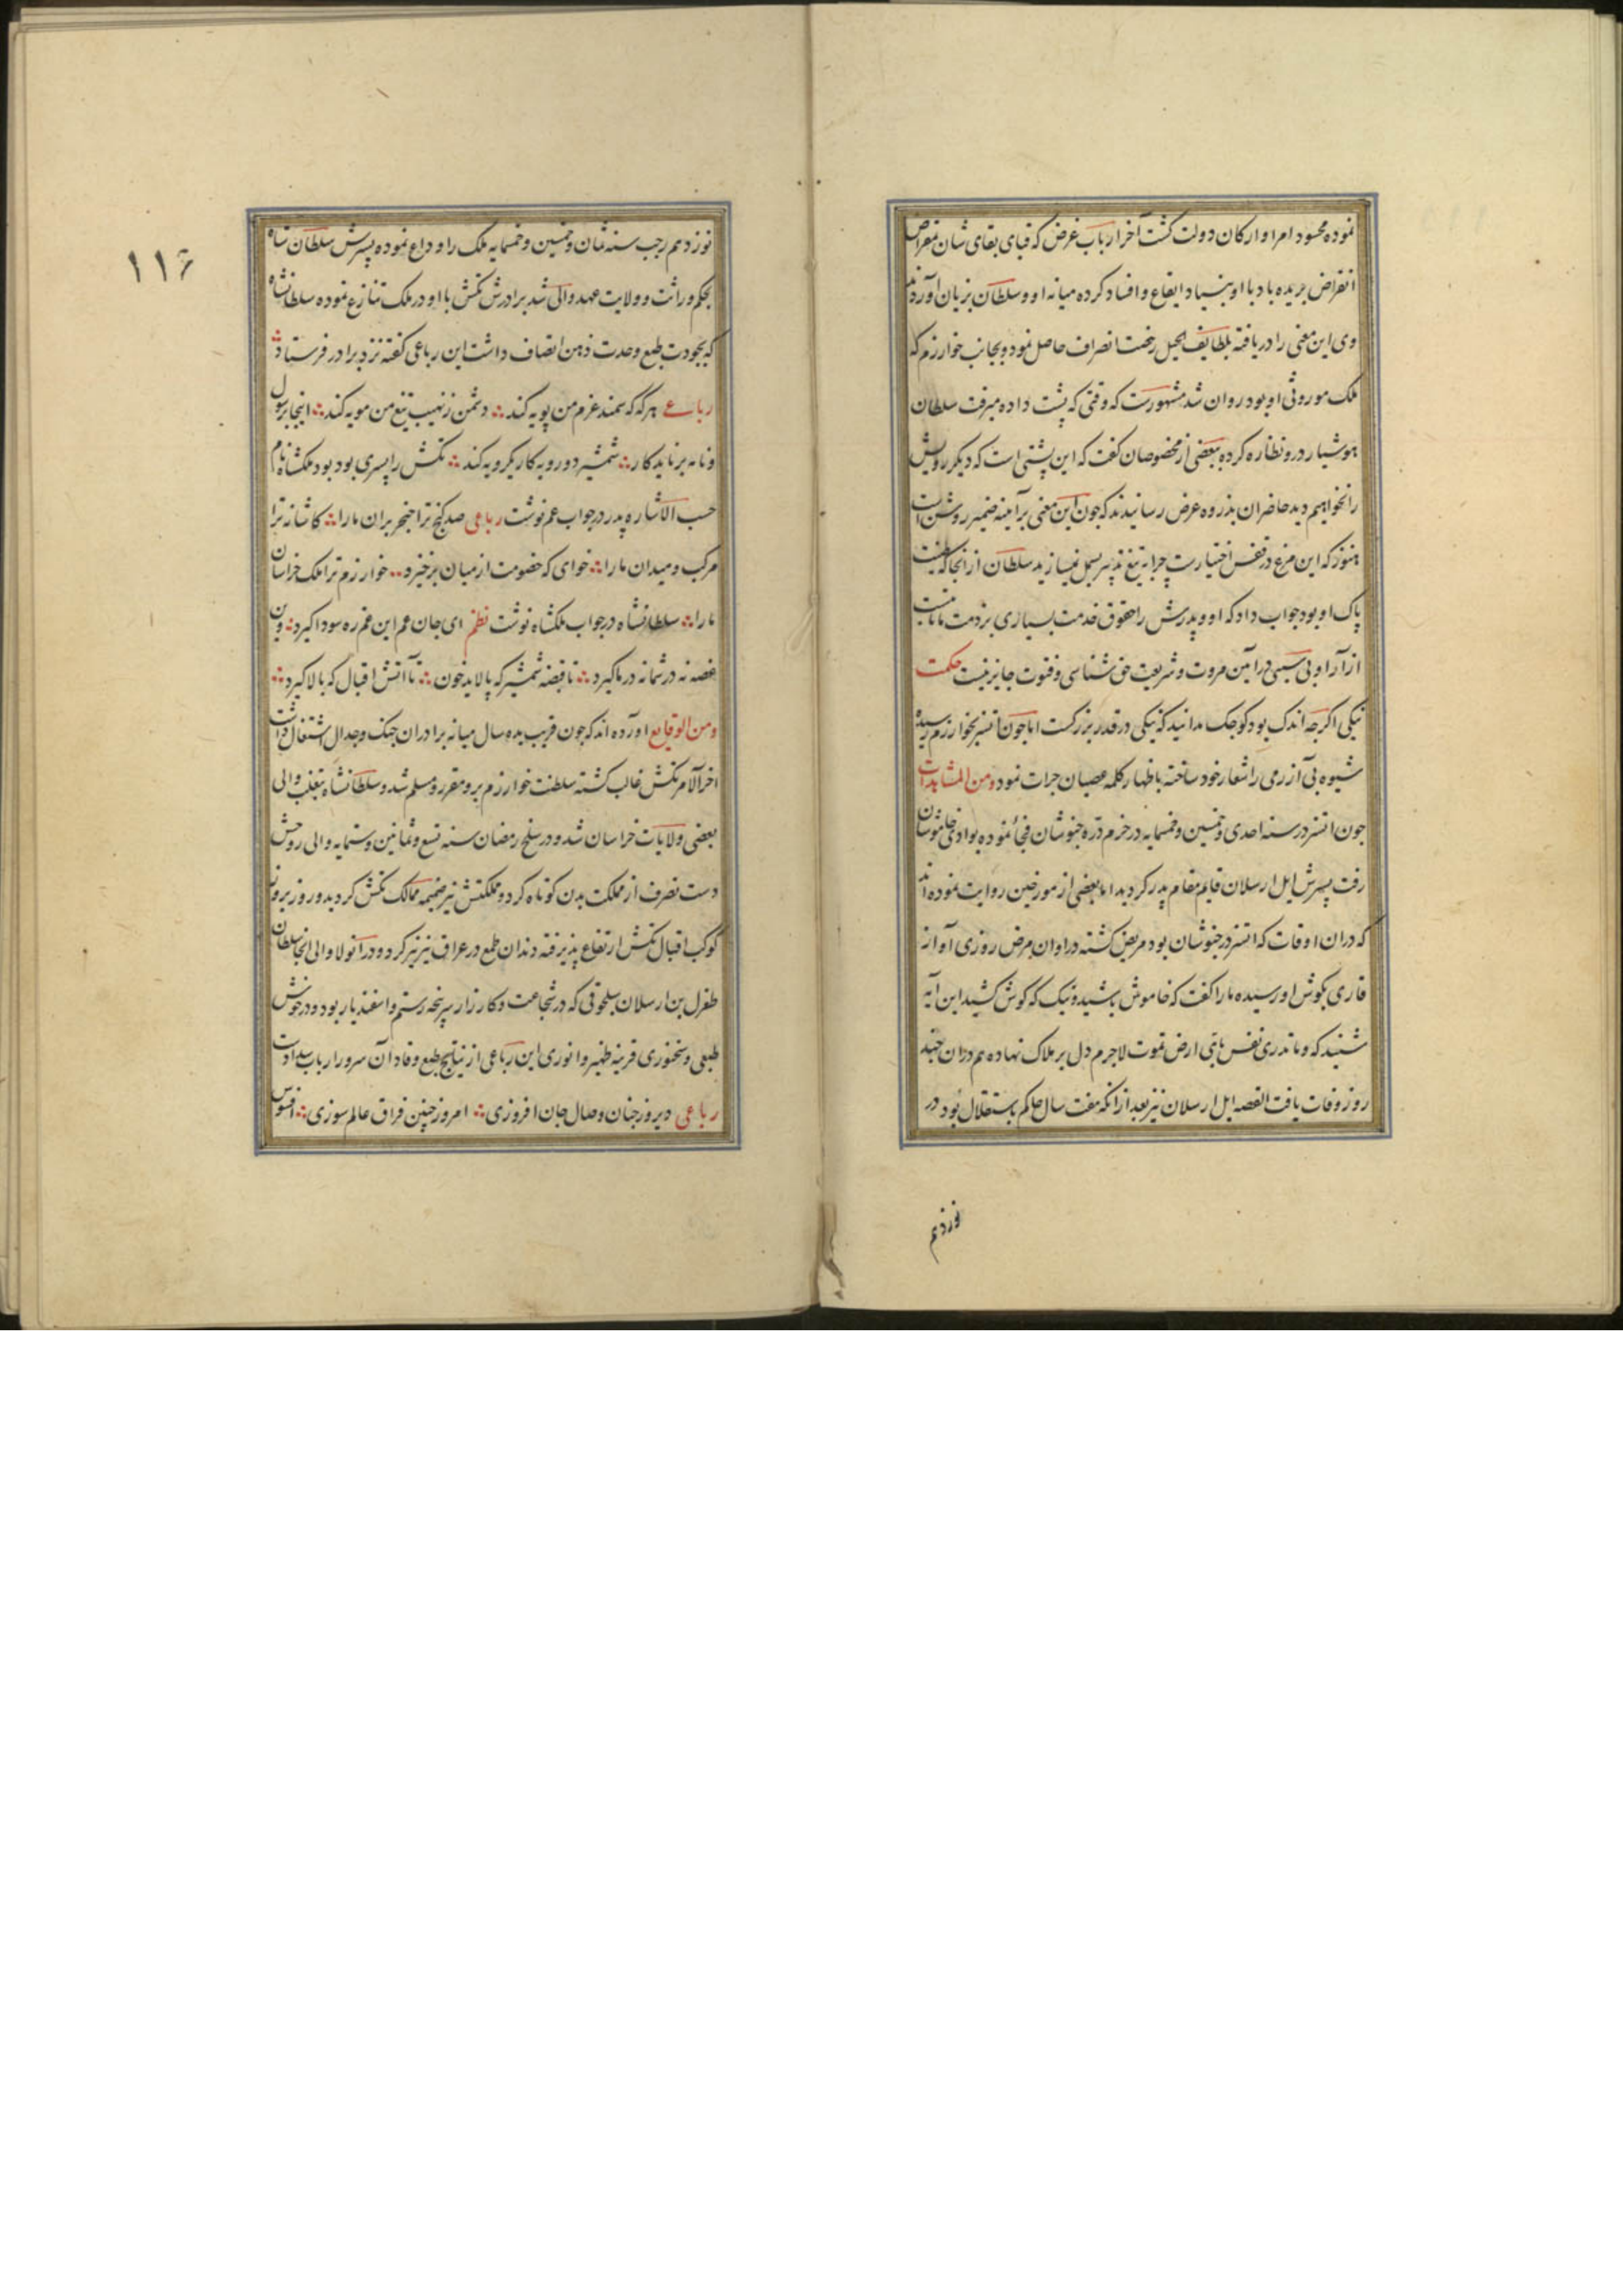 نموده محسود امرا و ارکان دولت کشت آخر ارباب غرض که قبای بقای شان بمقراض
انقراض بریده باد با او بنیاد ایقاع و افساد کرده میانه او و سلطان بزیان آوردند
وی این معنی را دریافته بلطایف الحیل رخصت انصراف حاصل نمود و بجانب خوارزم که
ملک موروثی او بود روان شد مشهورست که وقتی که پشت داده میرفت سلطان
هوشیار درو نظاره کرده ببعضی از مخصوصان گفت که این پشتی است که دیکر رویش
را نخواهیم دید حاضران بذروه عرض رسانیدند که جون این معنی بر آینه ضمیر روشن است
هنوز که این مرغ در قفس اختیارست چرا به تیغ تدبیر بسمل نمیسازید سلطان از انجا که طینت
پاک او بود جواب داد که او و پدرش را حقوق خدمت بسیاری بر ذمت ما ثابتست
ازار او بی سببی در آیین مروت و شریعت حق شناسی و فتوت جایز نیست حکمت
نیکی اکرجه اندک بود کوجک مدانید که نیکی در قدر بزرکست اما جون اتسز بخوارزم رسیده
شیوه بی آزرمی را شعار خود ساخته باظهار کلمه عصیان جرات نمود و من المشابهات
جون اتسز در سنه احدی و خمسین و خمسمایه در خرم دره خبوشان فجأ نموده بوادی خاموشان
رفت پسرش ایل ارسلان قایم مقام پدر کردید اما بعضی از مورخین روایت نموده اند
که دران اوقات که اتسز در خبوشان بود مریض کشته در اوان مرض روزی آوازه
قاری بکوش او رسیده مارا کفت که خاموش باشید و نیک که کوش کشید این آیه
شنید که و ما تدری نفس بای ارض تموت لاجرم دل بر هلاک نهاده هم دران چند
روز وفات یافت القصه ایل ارسلان نیز بعد ازانکه هفت سال حاکم باستقلال بود در
نوزدهم
١١٦
نوزدهم رجب سنه ثمان و خمسین و خمسمایه ملک را وداع نموده پسرش سلطان شاه
بحکم وراثت و ولایت عهد والی شد برادرش تکش با او در ملک تنازع نموده سلطانشاه
که بجودت طبع و حدت ذهن اتصاف داشت این رباعی کفته نزد برادر فرستاد
رباعی هرکه که سمند عزم من پویه کند دشمن ز نهیب تیغ من مویه کند اینجا برسول
و نامه بر ناید کار شمشیر دو رویه کار یکرویه کند تکش را پسری بود بود ملکشاه نام
حسب الاشاره پدر در جواب عم نوشت رباعی صد کنج ترا خنجر بران مارا کاشانه ترا
مرکب و میدان مارا خوای که خصومت از میان برخیزد خوارزم ترا ملک خراسان
مارا سلطانشاه در جواب ملکشاه نوشت نظم ای جان عم این غم ره سودا کیرد وین
غصه نه در شما نه در ما کیرد تا قبضه شمشیر که پالاید خون تا آتش اقبال که بالا کیرد
و من الوقایع اورده اند که جون قریب بده سال میانه برادران جنک و جدال اشتغال داشت
اخر الامر تکش غالب کشته سلطنت خوارزم برو مقرر و مسلم شد و سلطانشاه بتغلب والی
بعضی ولایات خراسان شد و در سلخ رمضان سنه تسع و ثمانین و ستمایه والی روحش
دست تصرف از مملکت بدن کوتاه کرد و مملکتش نیز ضمیمه ممالک تکش کردید و روز بروز
کوکب اقبال تکش ارتفاع پذیرفته دندان طمع در عراق نیز تیز کرد و در آنولا والی انجا سلطان
طغرل بن ارسلان سلجوقی که در شجاعت و کارزار سرپنجه رستم و اسفندیار بود و در خوش
طبعی و سخنوری قرینه ظهیر و انوری این رباعی از نتایج طبع وقاد آن سرور ارباب سدادت
رباعی دیروز جنان وصال جان افروزی امروز چنین فراق عالم سوزی افسوس